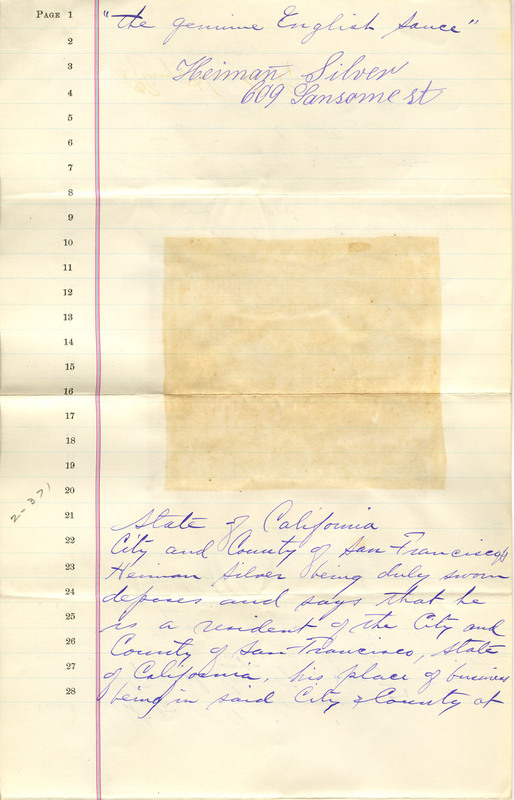 PAGE 1
"the genuine English Sauce"
2
3
Heiman Silver
4
609 Sansome st
5
6
7
8
9
10
11
12
13
14
15
16
17
18
19
20
2-371
21
State of California
22
City and County of San Francisco
23
Heiman Silver being duly sworn
24
deposes and says that he
25
is a resident of the City and
26
County of San Francisco, State
27
of California, his place of business
28
being in said City & County at